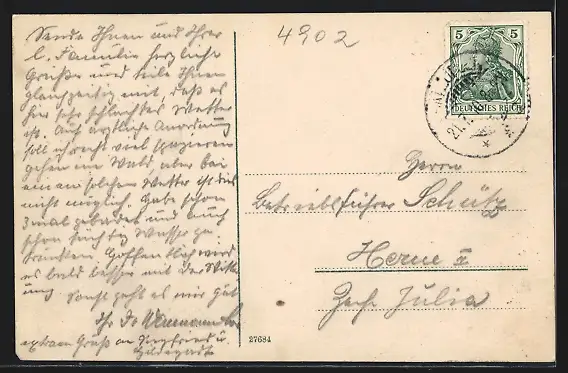 Sende Ihnen und Ihrer
l. Familie herzliche
Grüße und teile Ihnen
gleichzeitig mit, daß es
hier sehr schlechtes Wetter
ist. Auf ärztliche Anordnung
soll ich recht viel spazieren
gehen im Wald, aber bei
einem solchen Wetter ist dies
nicht möglich. Habe schon
3mal gebadet und auch
schon tüchtig Wasser ge
trunken. Hoffentlich wird
es bald besser mit der Witte
rung sonst geht es mir gut
Ihr
extra Gruß an Siegfried u.
Hildegard
4902
5 5
DEUTSCHES REICH
Herrn
Betriebsführer Schütz
Herne
Zeche Julia
27684